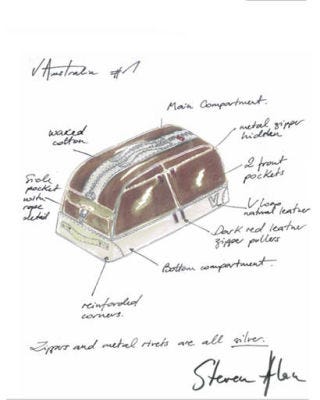 V Australia #1
Main Compartment.
waxed
cotton.
metal zipper
hidden
2 front
pockets
Side
pocket
with
rope
detail
V Logo
natural leather
Dark red leather
zipper pullers
Bottom compartment.
reinforded
corners.
Zippers and metal rivets are all silver.
Steven Alan